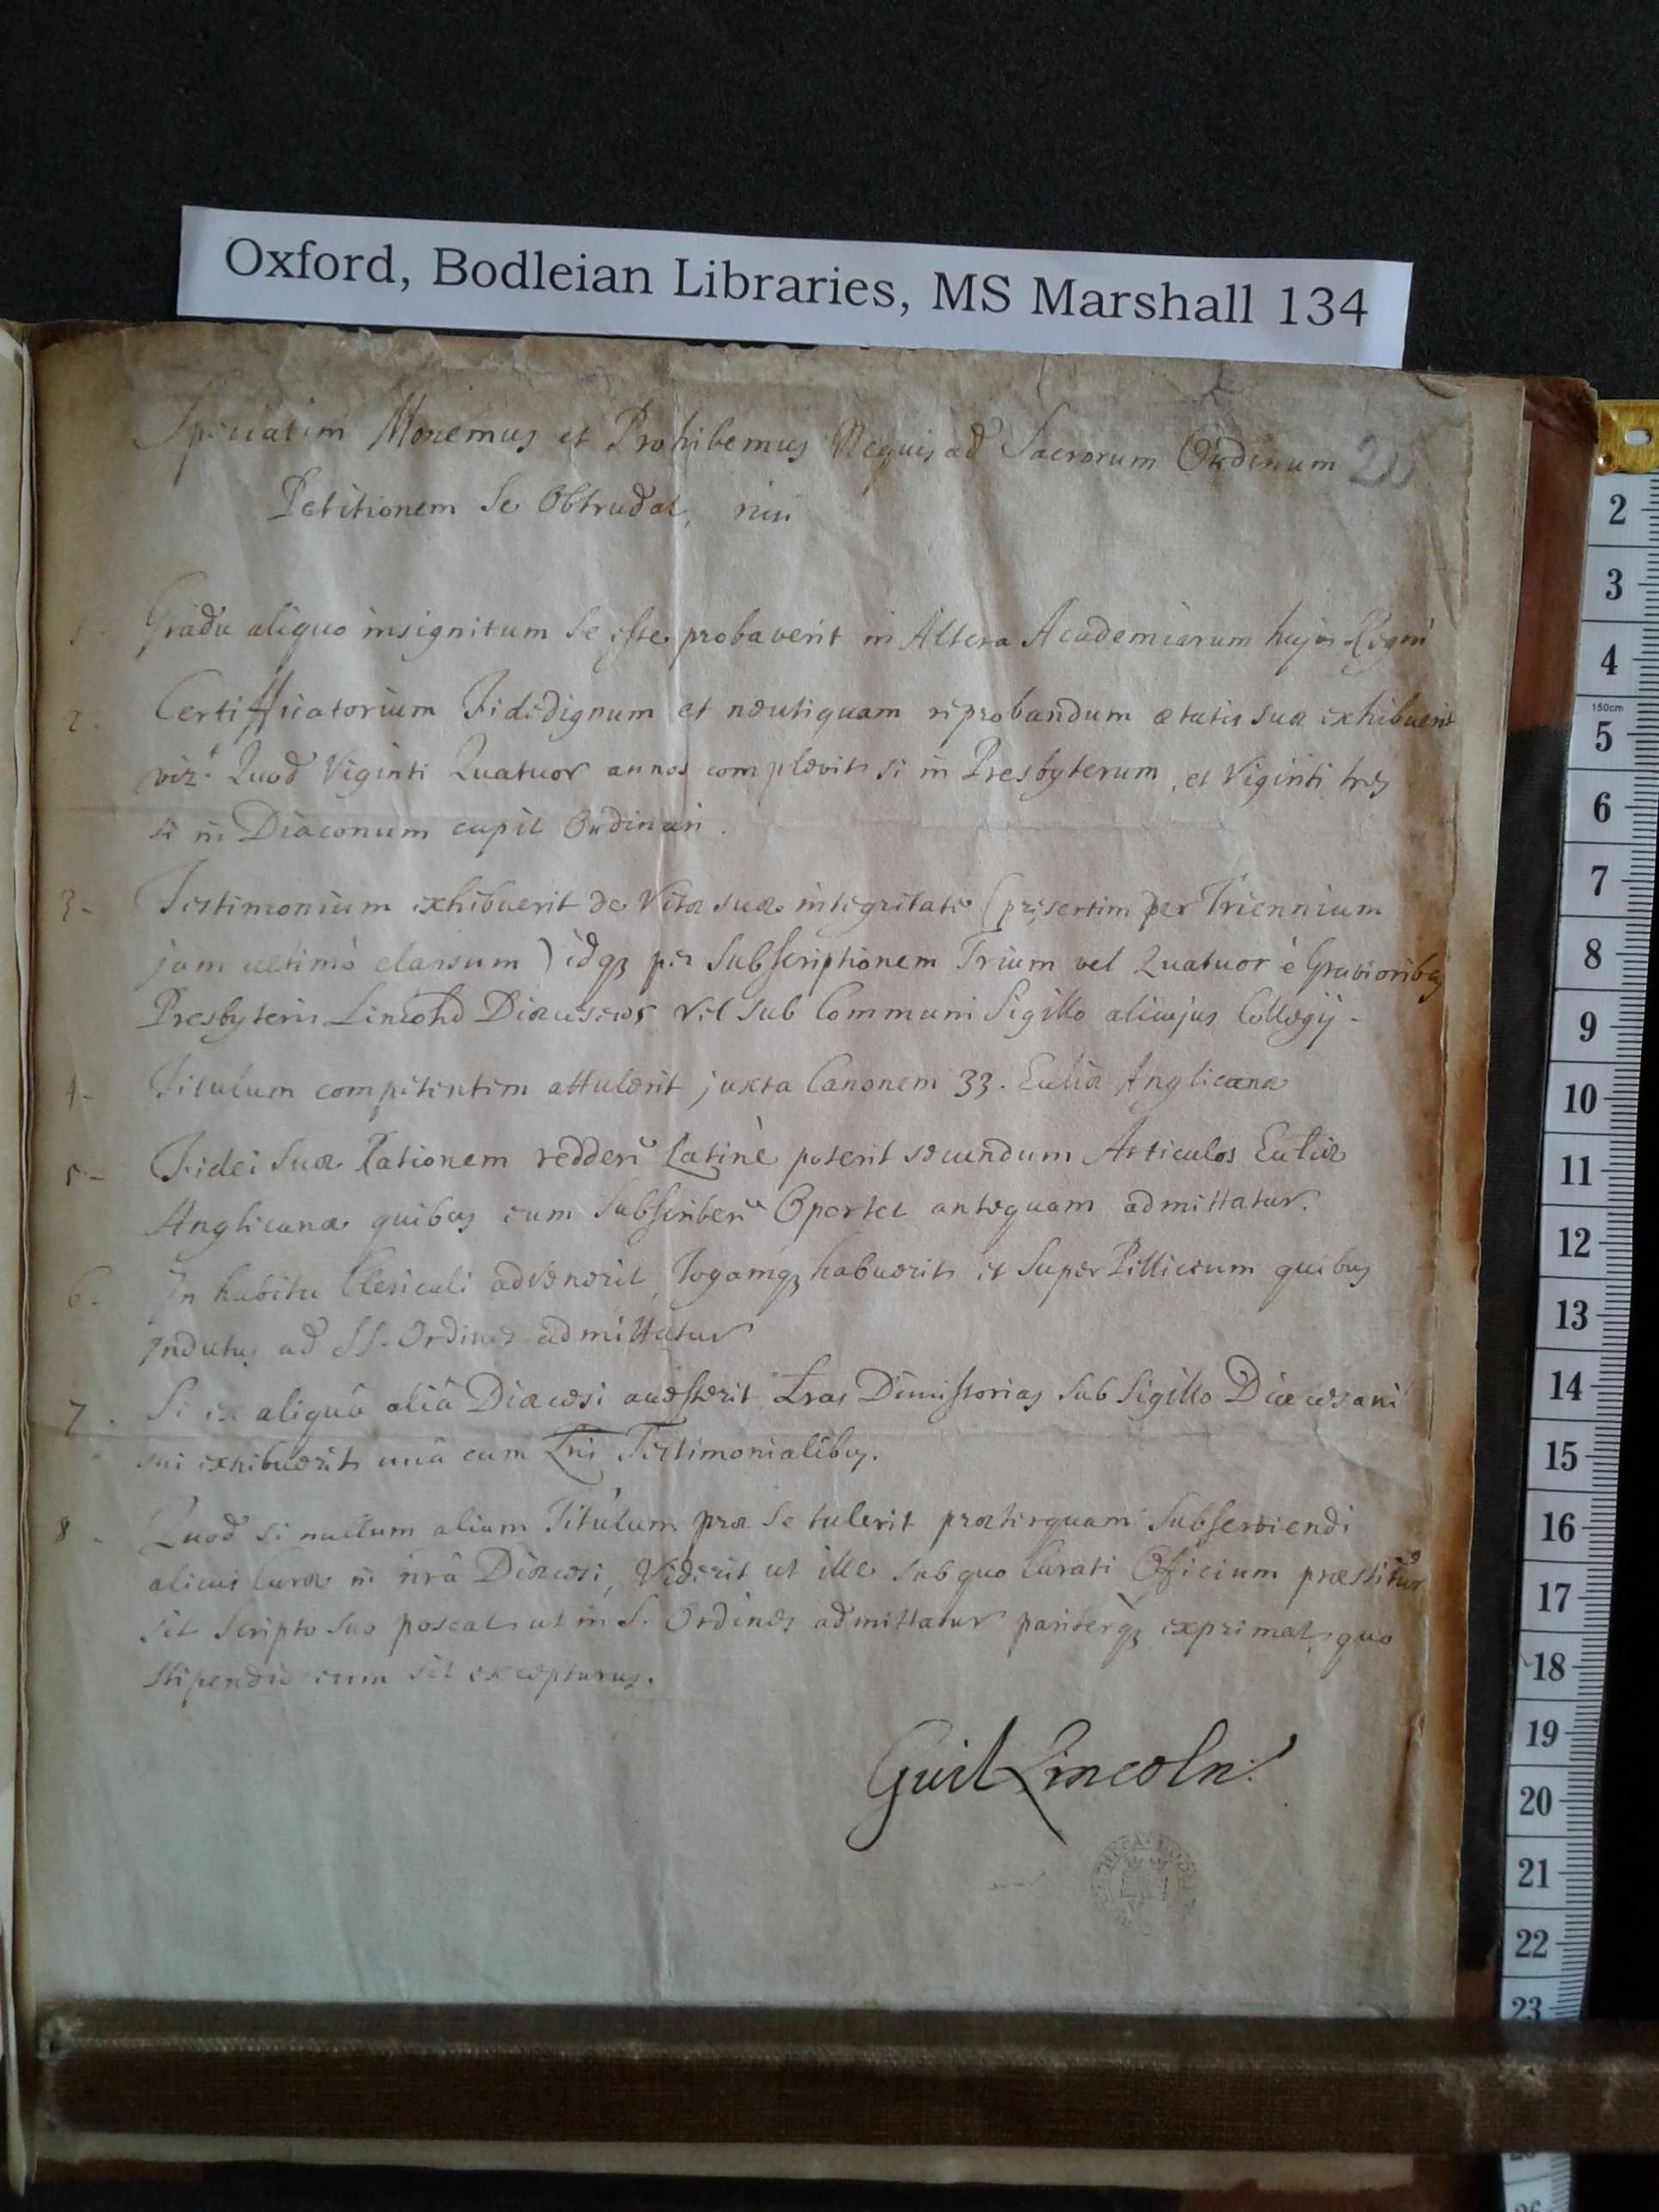 Oxford, Bodleian Libraries, MS Marshall 134
Speciatim Monemus et Prohibemus Nequis ad Sacrorum Ordinum 20
Petitionem se Obtrudat, nisi
1. Gradu aliquo insignitum se esse probaverit in Altera Academiarum hujus Regni
2. Certifficatorium Fidedignum et neutiquam reprobandum ætatis suæ exhibuerit
vizt. Quod Viginti Quatuor annos complevit si in Presbyterum, et Viginti tres
si in Diaconum cupit Ordinari.
3- Testimonium exhibuerit de Vitæ suæ integritate (presertim per Triennium
jam ultimò elapsum) idq; per Subscriptionem Trium vel Quatuor è Gravioribus
Presbyteris Lincolñ Diæceseos vel sub Communi Sigillo alicujus Collegij-
4- Titulum competentem attulerit juxta Canonem 33. Eccliæ Anglicanæ
5- Fidei suæ Rationem reddere Latinè poterit secundum Articulos Eccliæ
Anglicanæ quibus eum Subscribere Oportet antequam admittatur.
6. In habitu Clericali advenerit, Togamq; habuerit et SuperPilliceum quibus
Indutus ad SS. Ordines admittatur
7. Si ex aliquâ aliâ Diæcesi accesserit Lras Dimissorias sub Sigillo Diæcesani
sui exhibuerit unâ cum Lris Testimonialibus.
8- Quod si nullum alium Titulum præ se tulerit præterquam Subserviendi
alicui Curæ in nrâ Diæcesi, Viderit ut ille sub quo Curati Officium præstiturus
sit scripto suo poscat ut in S. Ordines admittatur pariterq; exprimat quo
stipendio eum sit excepturus.
Guil Lincoln:
2
3
4
150cm
5
6
7
8
9
10
11
12
13
14
15
16
17
18
19
20
21
22
23